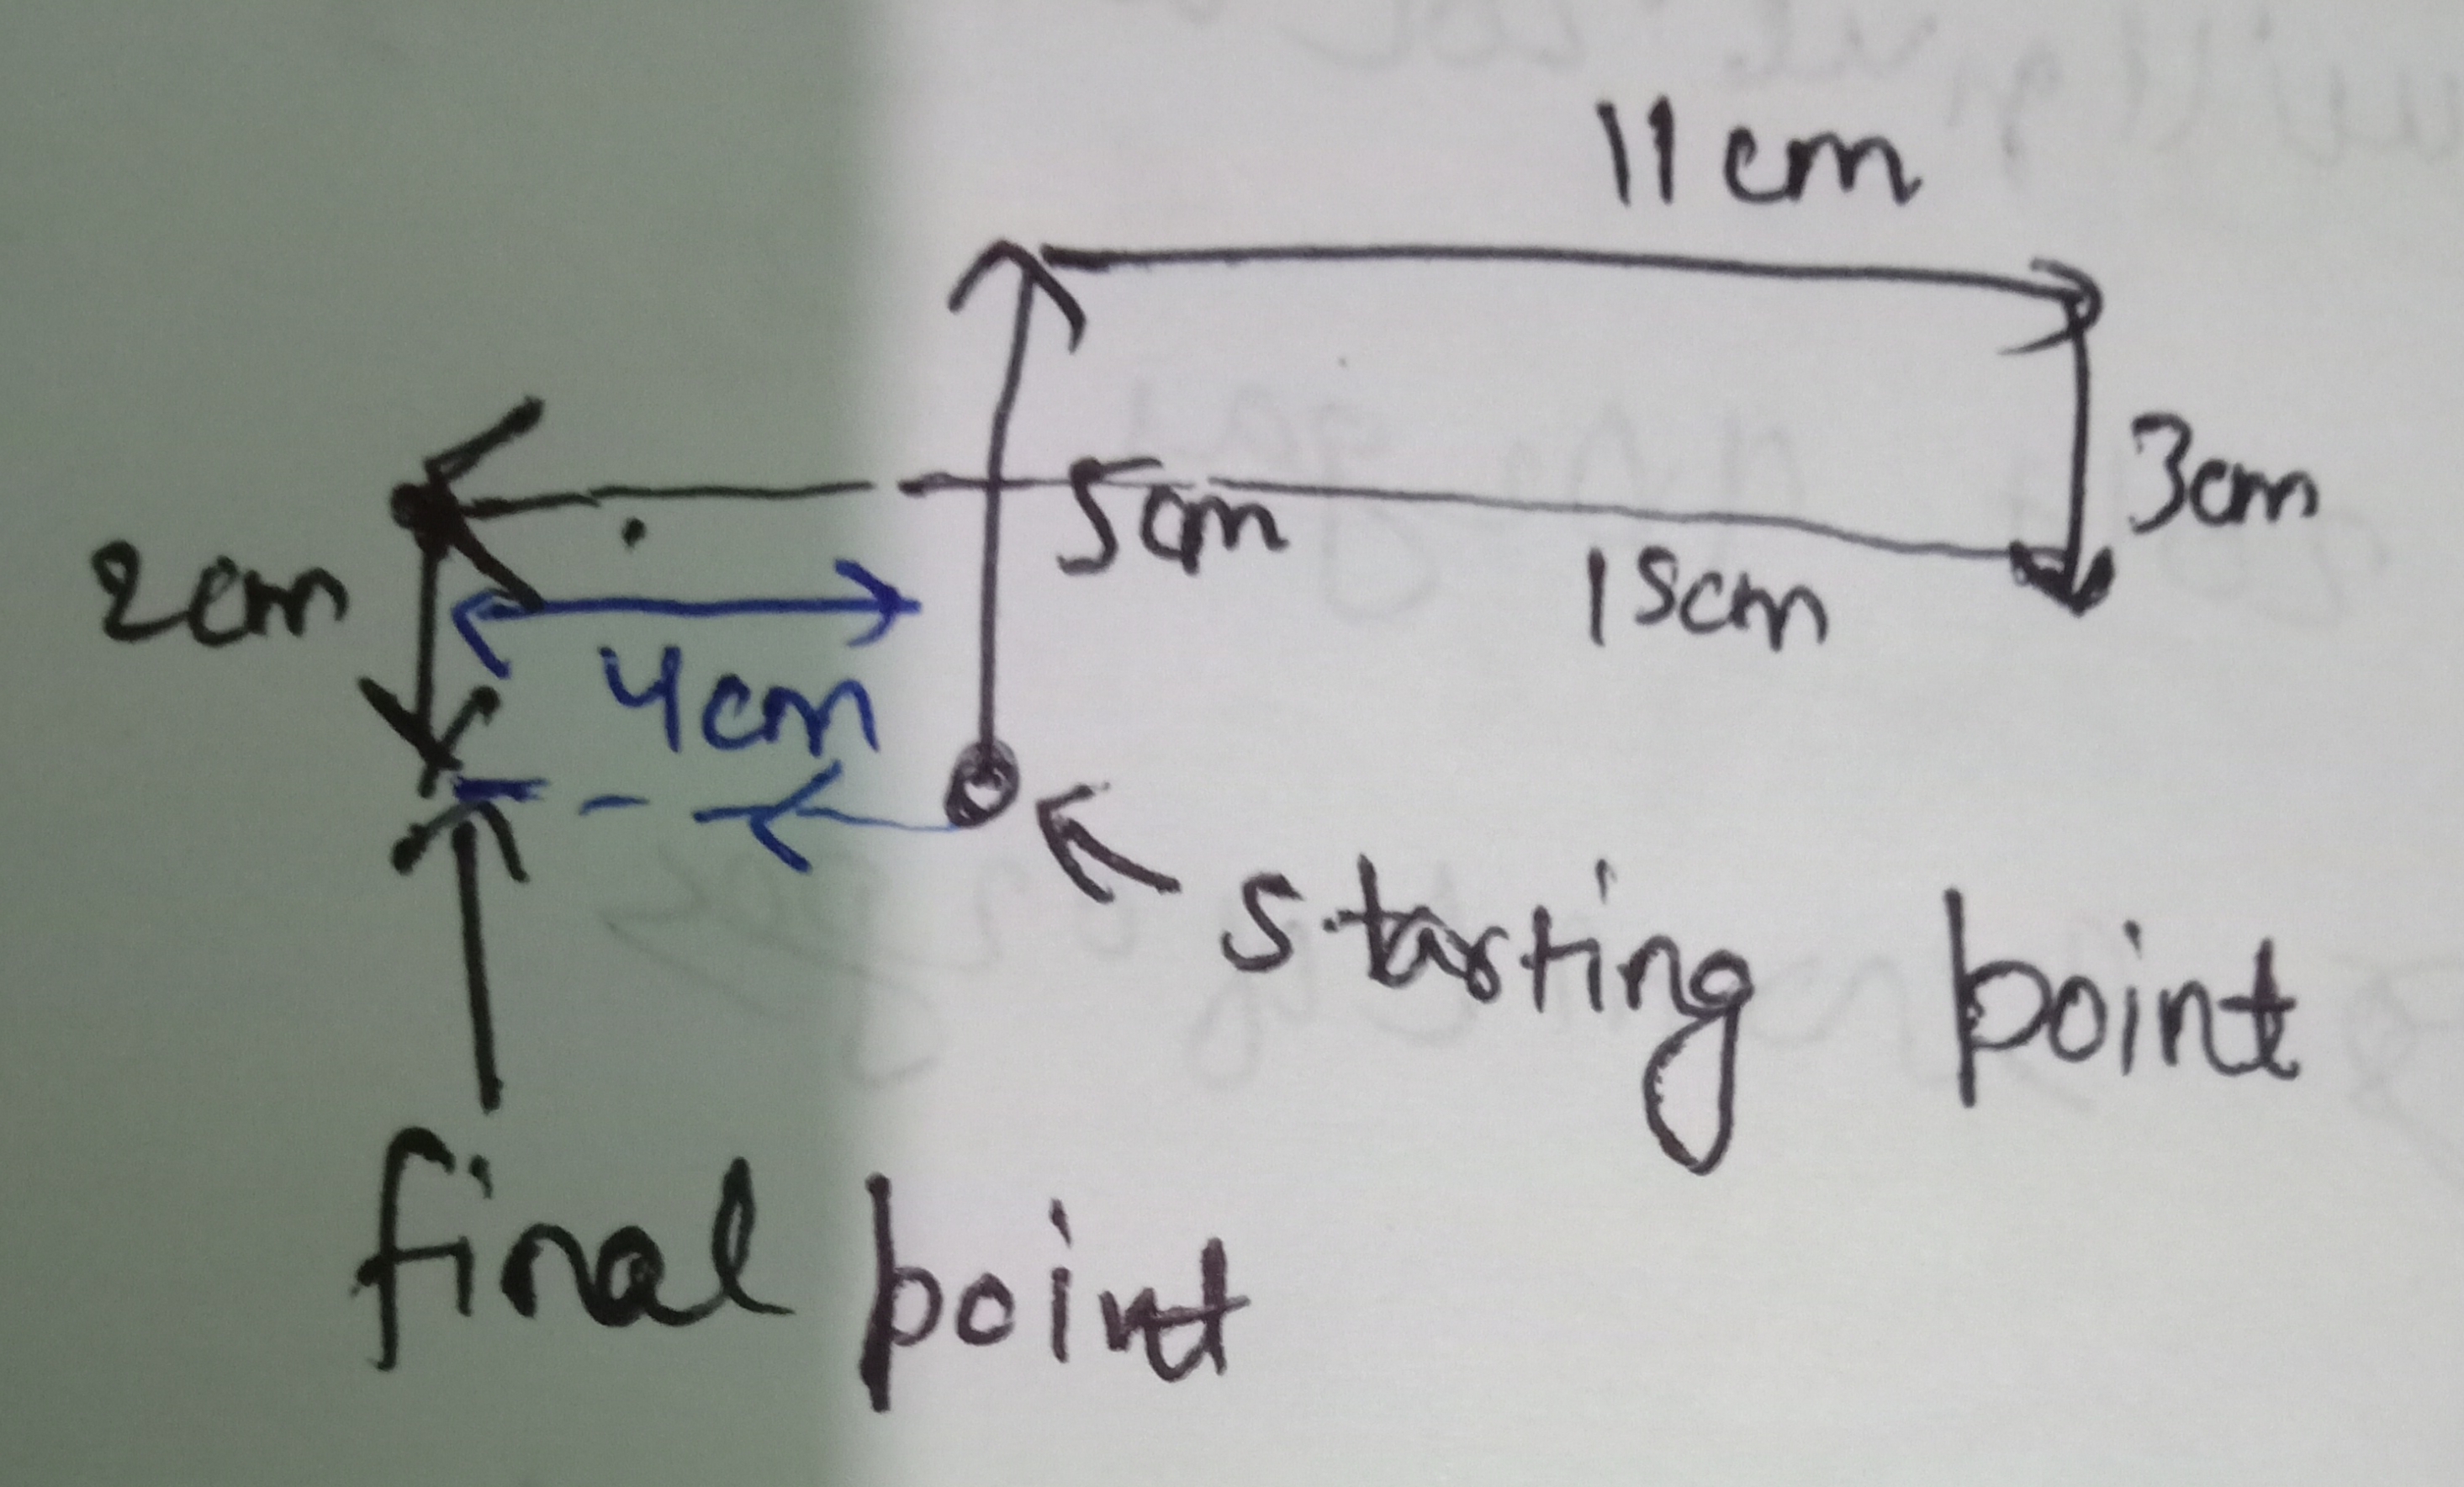 11 cm
3cm
5cm
15cm
2cm
4cm
starting point
final point